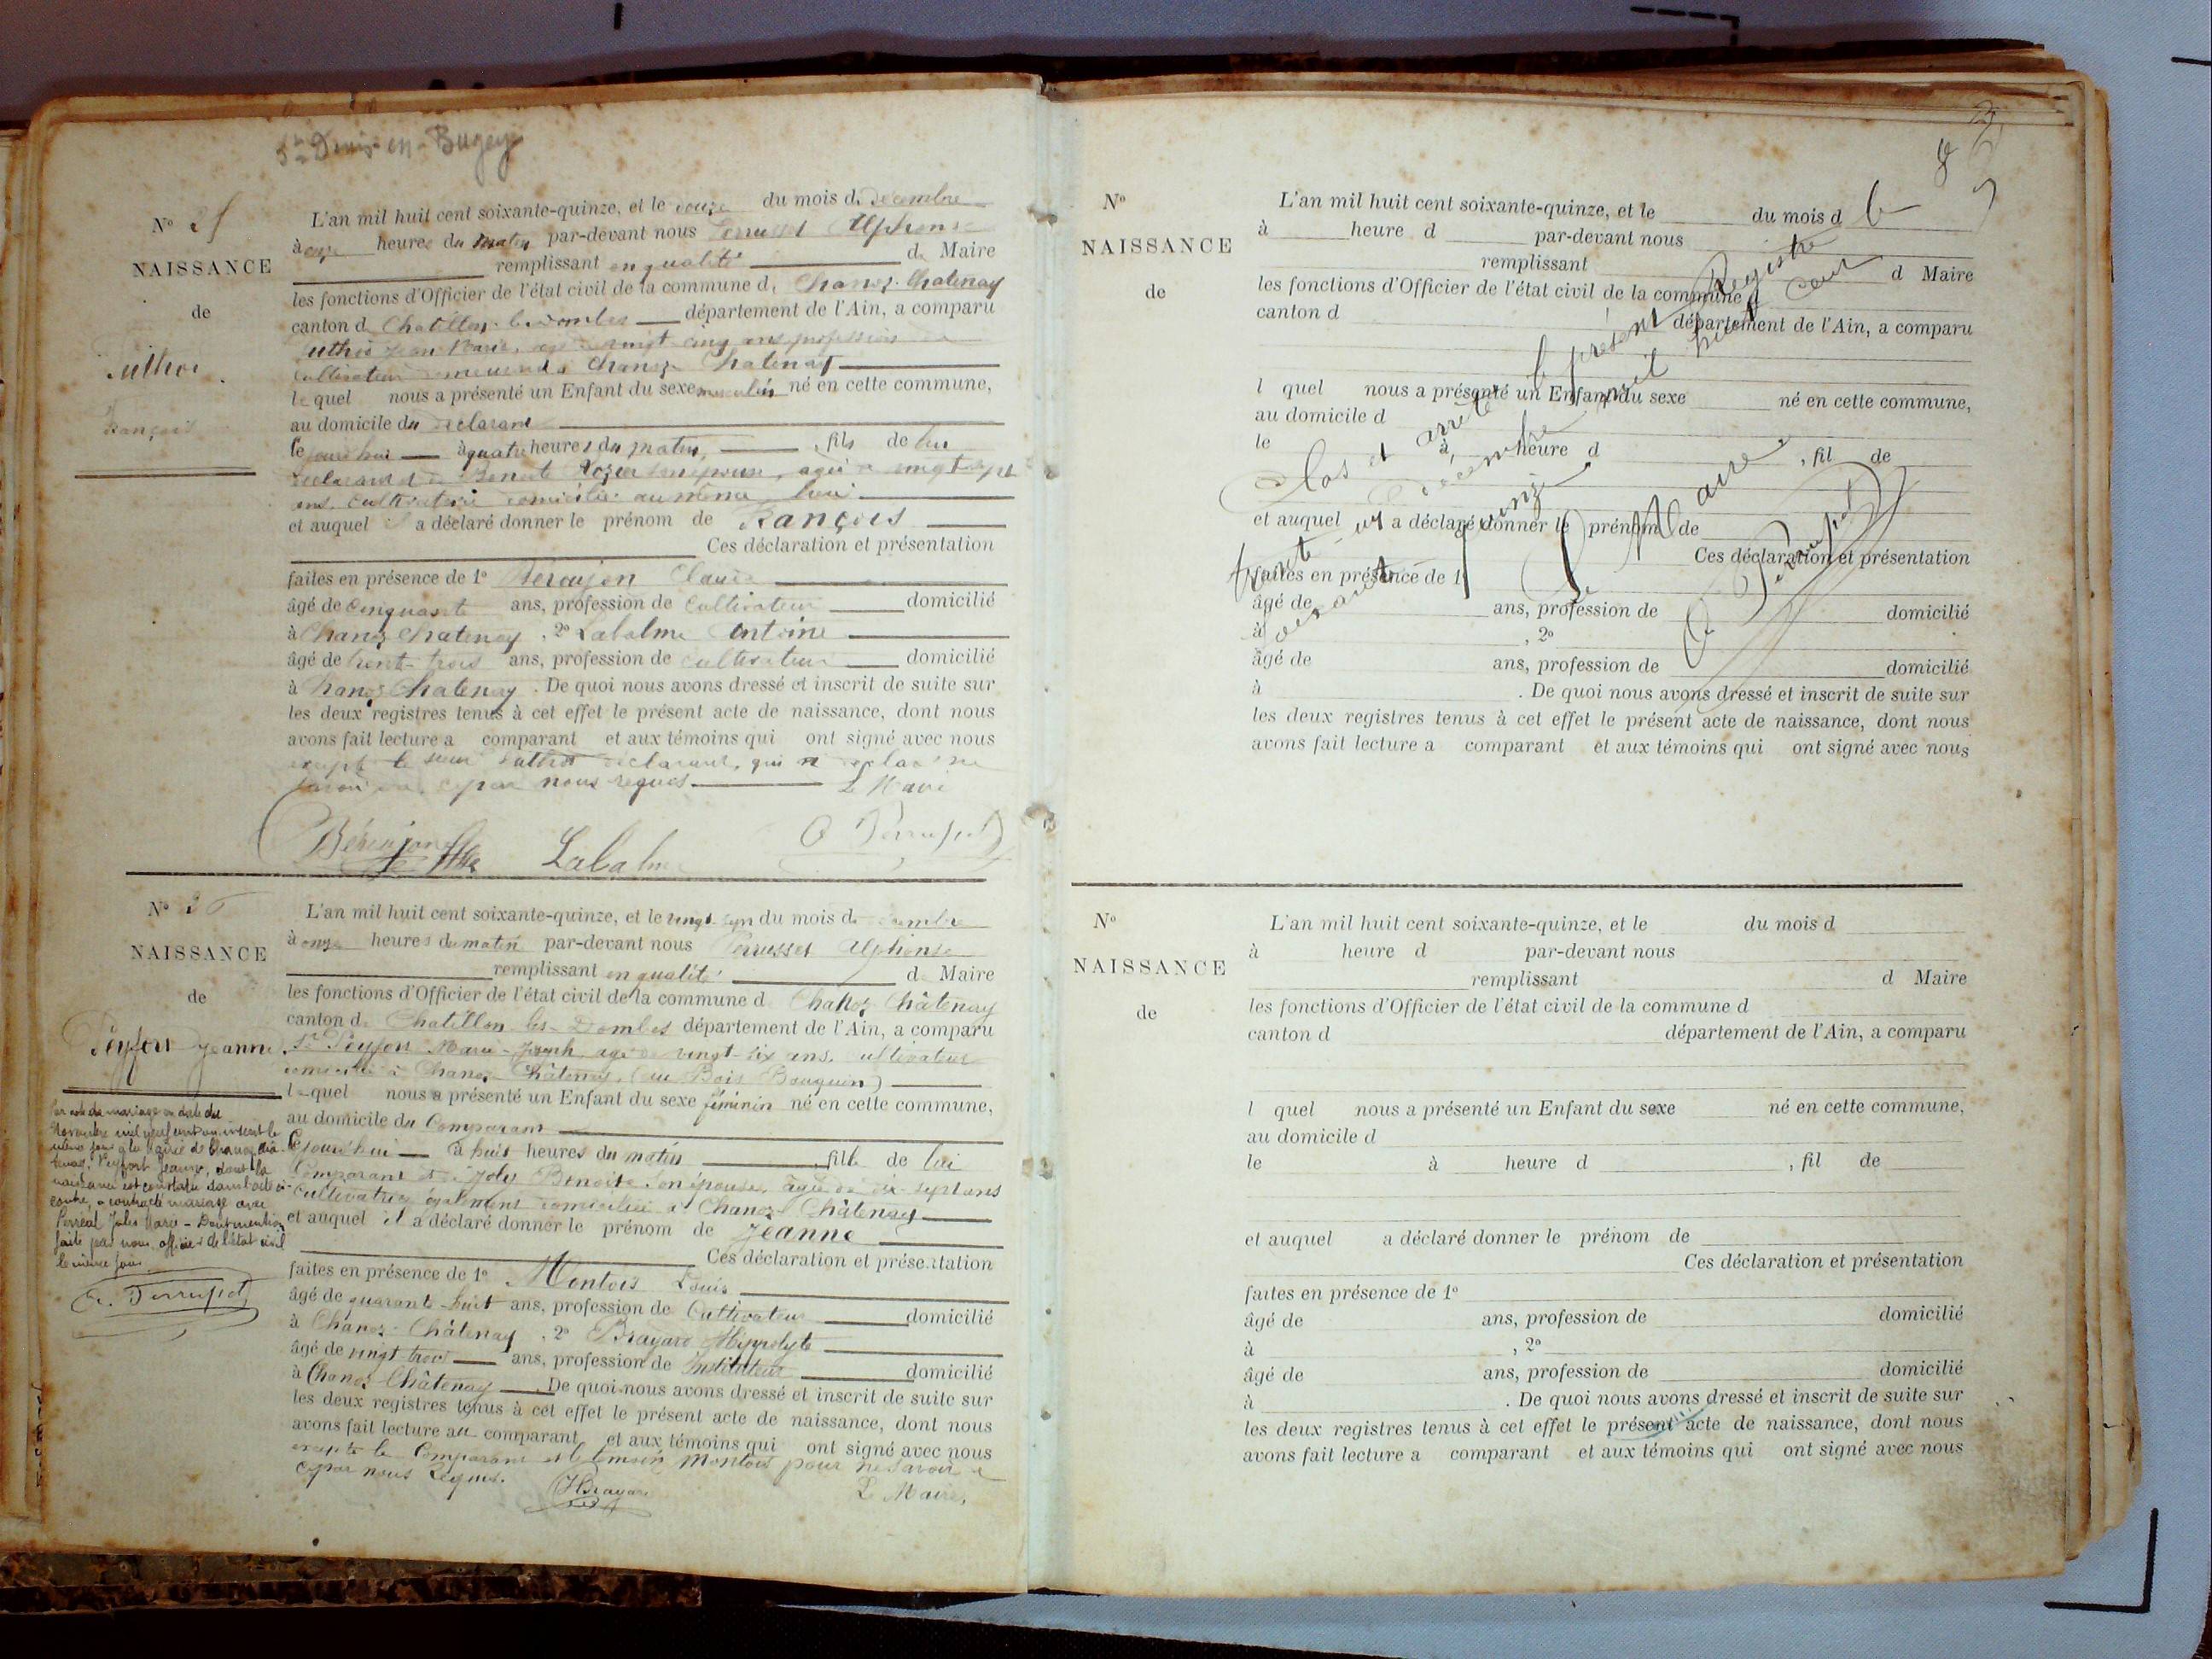 St Denis-en-Bugey
N° 25
NAISSANCE
de
Luthrin
François
L'an mil huit cent soixante-quinze, et le douze du mois de Décembre
à onze heures du matin par-devant nous Perrusset Alphonse
remplissant en qualité de Maire
les fonctions d'Officier de l'état civil de la commune de Chanoz-Chatenay
canton de Chatillon-les-Dombes département de l'Ain, a comparu
Jean Marie, âgé de vingt cinq ans profession de
cultivateur demeurant à Chanoz Chatenay
lequel nous a présenté un Enfant du sexe masculin né en cette commune,
au domicile du déclarant
le jourd'hui à quatre heures du matin, fils de lui
déclarant et de Benoite son épouse, agée de vingt sept
ans, cultivatrice domiciliée au même lieu
et auquel il a déclaré donner le prénom de François
Ces déclaration et présentation
faites en présence de 1° Béraujon Claude
âgé de cinquante ans, profession de cultivateur domicilié
à Chanoz Chatenay, 2° Labalme Antoine
âgé de trente-trois ans, profession de cultivateur domicilié
à Chanoz Chatenay. De quoi nous avons dressé et inscrit de suite sur
les deux registres tenus à cet effet le présent acte de naissance, dont nous
avons fait lecture a comparant et aux témoins qui ont signé avec nous
excepté le sieur déclarant, qui a déclaré ne
savoir de ce par nous requis
Le Maire
Béraujon Labalme A Perrusset
N° 26
NAISSANCE
de
Peyfort Jeanne
L'an mil huit cent soixante-quinze, et le vingt-cinq du mois de Décembre
à onze heures du matin par-devant nous Perrusset Alphonse
remplissant en qualité de Maire
les fonctions d'Officier de l'état civil de la commune de Chanoz Châtenay
canton de Chatillon-les-Dombes département de l'Ain, a comparu
sr Peyfort Marie-Joseph, agé de vingt-six ans, cultivateur
domicilié à Chanoz-Châtenay, (au Bois Bouquin)
lequel nous a présenté un Enfant du sexe féminin né en cette commune,
au domicile du Comparant
Cejourd'hui à huit heures du matin fille de lui
Comparant et de Joly Benoite son épouse, âgée de dix-sept ans
cultivatrice également domiciliée à Chanoz-Châtenay
et auquel il a déclaré donner le prénom de Jeanne
Ces déclaration et présentation
faites en présence de 1° Montois Louis
âgé de quarante-huit ans, profession de Cultivateur domicilié
à Chanoz-Châtenay, 2° Brayard Hippolyte
âgé de vingt trois ans, profession de Instituteur domicilié
à Chanoz-Châtenay De quoi nous avons dressé et inscrit de suite sur
les deux registres tenus à cet effet le présent acte de naissance, dont nous
avons fait lecture au comparant et aux témoins qui ont signé avec nous
excepté le Comparant et le témoin Montois pour ne savoir de
ce par nous Requis.
HBrayard
Le Maire,
Par acte de mariage en date du
Novembre mil neuf cent un inscrit le
même jour à la Mairie de Chanoz-Châ-
tenay, Peyfort Jeanne, dont la
naissance est constatée dans l'acte ci-
contre, a contracté mariage avec
Perréal Jules Marie - Dont mention
faite par nous officier de l'état civil
le même jour
A. Perrusset
8
N°
NAISSANCE
de
L'an mil huit cent soixante-quinze, et le du mois d
à heure d par-devant nous
remplissant d Maire
les fonctions d'Officier de l'état civil de la commune d
canton d département de l'Ain, a comparu
l quel nous a présenté un Enfant du sexe né en cette commune,
au domicile d
le à heure d , fil de
et auquel a déclaré donner le prénom de
Ces déclaration et présentation
faites en présence de 1°
âgé de ans, profession de domicilié
à , 2°
âgé de ans, profession de domicilié
à . De quoi nous avons dressé et inscrit de suite sur
les deux registres tenus à cet effet le présent acte de naissance, dont nous
avons fait lecture a comparant et aux témoins qui ont signé avec nous
Clos et arrêté le présent Registre le
trente un Décembre mil huit cent
soixante quinze
Le Maire
A Perrusset
N°
NAISSANCE
de
L'an mil huit cent soixante-quinze, et le du mois d
à heure d par-devant nous
remplissant d Maire
les fonctions d'Officier de l'état civil de la commune d
canton d département de l'Ain, a comparu
l quel nous a présenté un Enfant du sexe né en cette commune,
au domicile d
le à heure d , fil de
et auquel a déclaré donner le prénom de
Ces déclaration et présentation
faites en présence de 1°
âgé de ans, profession de domicilié
à , 2°
âgé de ans, profession de domicilié
à . De quoi nous avons dressé et inscrit de suite sur
les deux registres tenus à cet effet le présent acte de naissance, dont nous
avons fait lecture a comparant et aux témoins qui ont signé avec nous